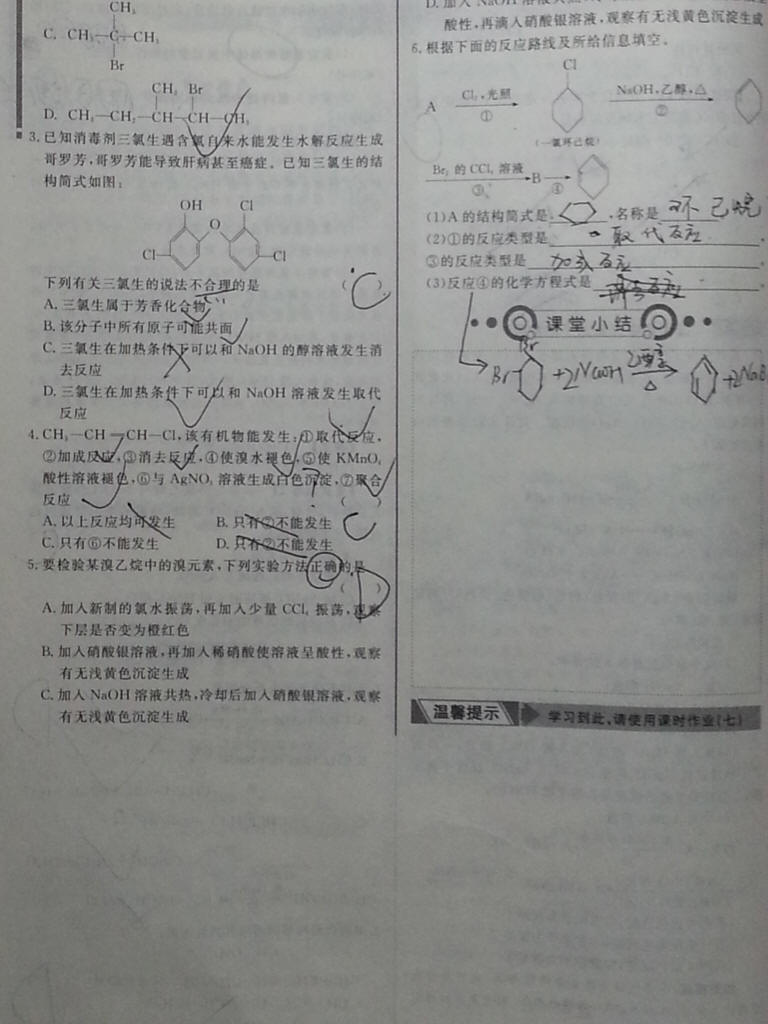 CH₃
C. CH₃—C—CH₃
Br
CH₃ Br
D. CH₃—CH₂—CH—CH—CH₃
3. 已知消毒剂三氯生遇含氯自来水能发生水解反应生成
哥罗芳,哥罗芳能导致肝病甚至癌症。已知三氯生的结
构简式如图:
OH Cl
O
Cl Cl
下列有关三氯生的说法不合理的是 ( C )
A. 三氯生属于芳香化合物
B. 该分子中所有原子可能共面
C. 三氯生在加热条件下可以和 NaOH 的醇溶液发生消
去反应
D. 三氯生在加热条件下可以和 NaOH 溶液发生取代
反应
4. CH₃—CH=CH—Cl,该有机物能发生:①取代反应,
②加成反应,③消去反应,④使溴水褪色,⑤使 KMnO₄
酸性溶液褪色,⑥与 AgNO₃ 溶液生成白色沉淀,⑦聚合
?
反应 ( C )
A. 以上反应均可发生 B. 只有⑦不能发生
C. 只有⑥不能发生 D. 只有②不能发生
5. 要检验某溴乙烷中的溴元素,下列实验方法正确的是
( D )
A. 加入新制的氯水振荡,再加入少量 CCl₄ 振荡,观察
下层是否变为橙红色
B. 加入硝酸银溶液,再加入稀硝酸使溶液呈酸性,观察
有无浅黄色沉淀生成
C. 加入 NaOH 溶液共热,冷却后加入硝酸银溶液,观察
有无浅黄色沉淀生成
D. 加入 NaOH 溶液
酸性,再滴入硝酸银溶液,观察有无浅黄色沉淀生成
6. 根据下面的反应路线及所给信息填空。
Cl
A Cl₂,光照 ① NaOH,乙醇,△ ②
(一氯环己烷)
Br₂ 的 CCl₄ 溶液 ③ B ④
(1)A 的结构简式是 ,名称是 环己烷
(2)①的反应类型是 取代反应 。
③的反应类型是 加成反应 。
(3)反应④的化学方程式是 。
课堂小结
Br
Br +2NaOH 乙醇 △ +2NaB
温馨提示 学习到此,请使用课时作业(七)